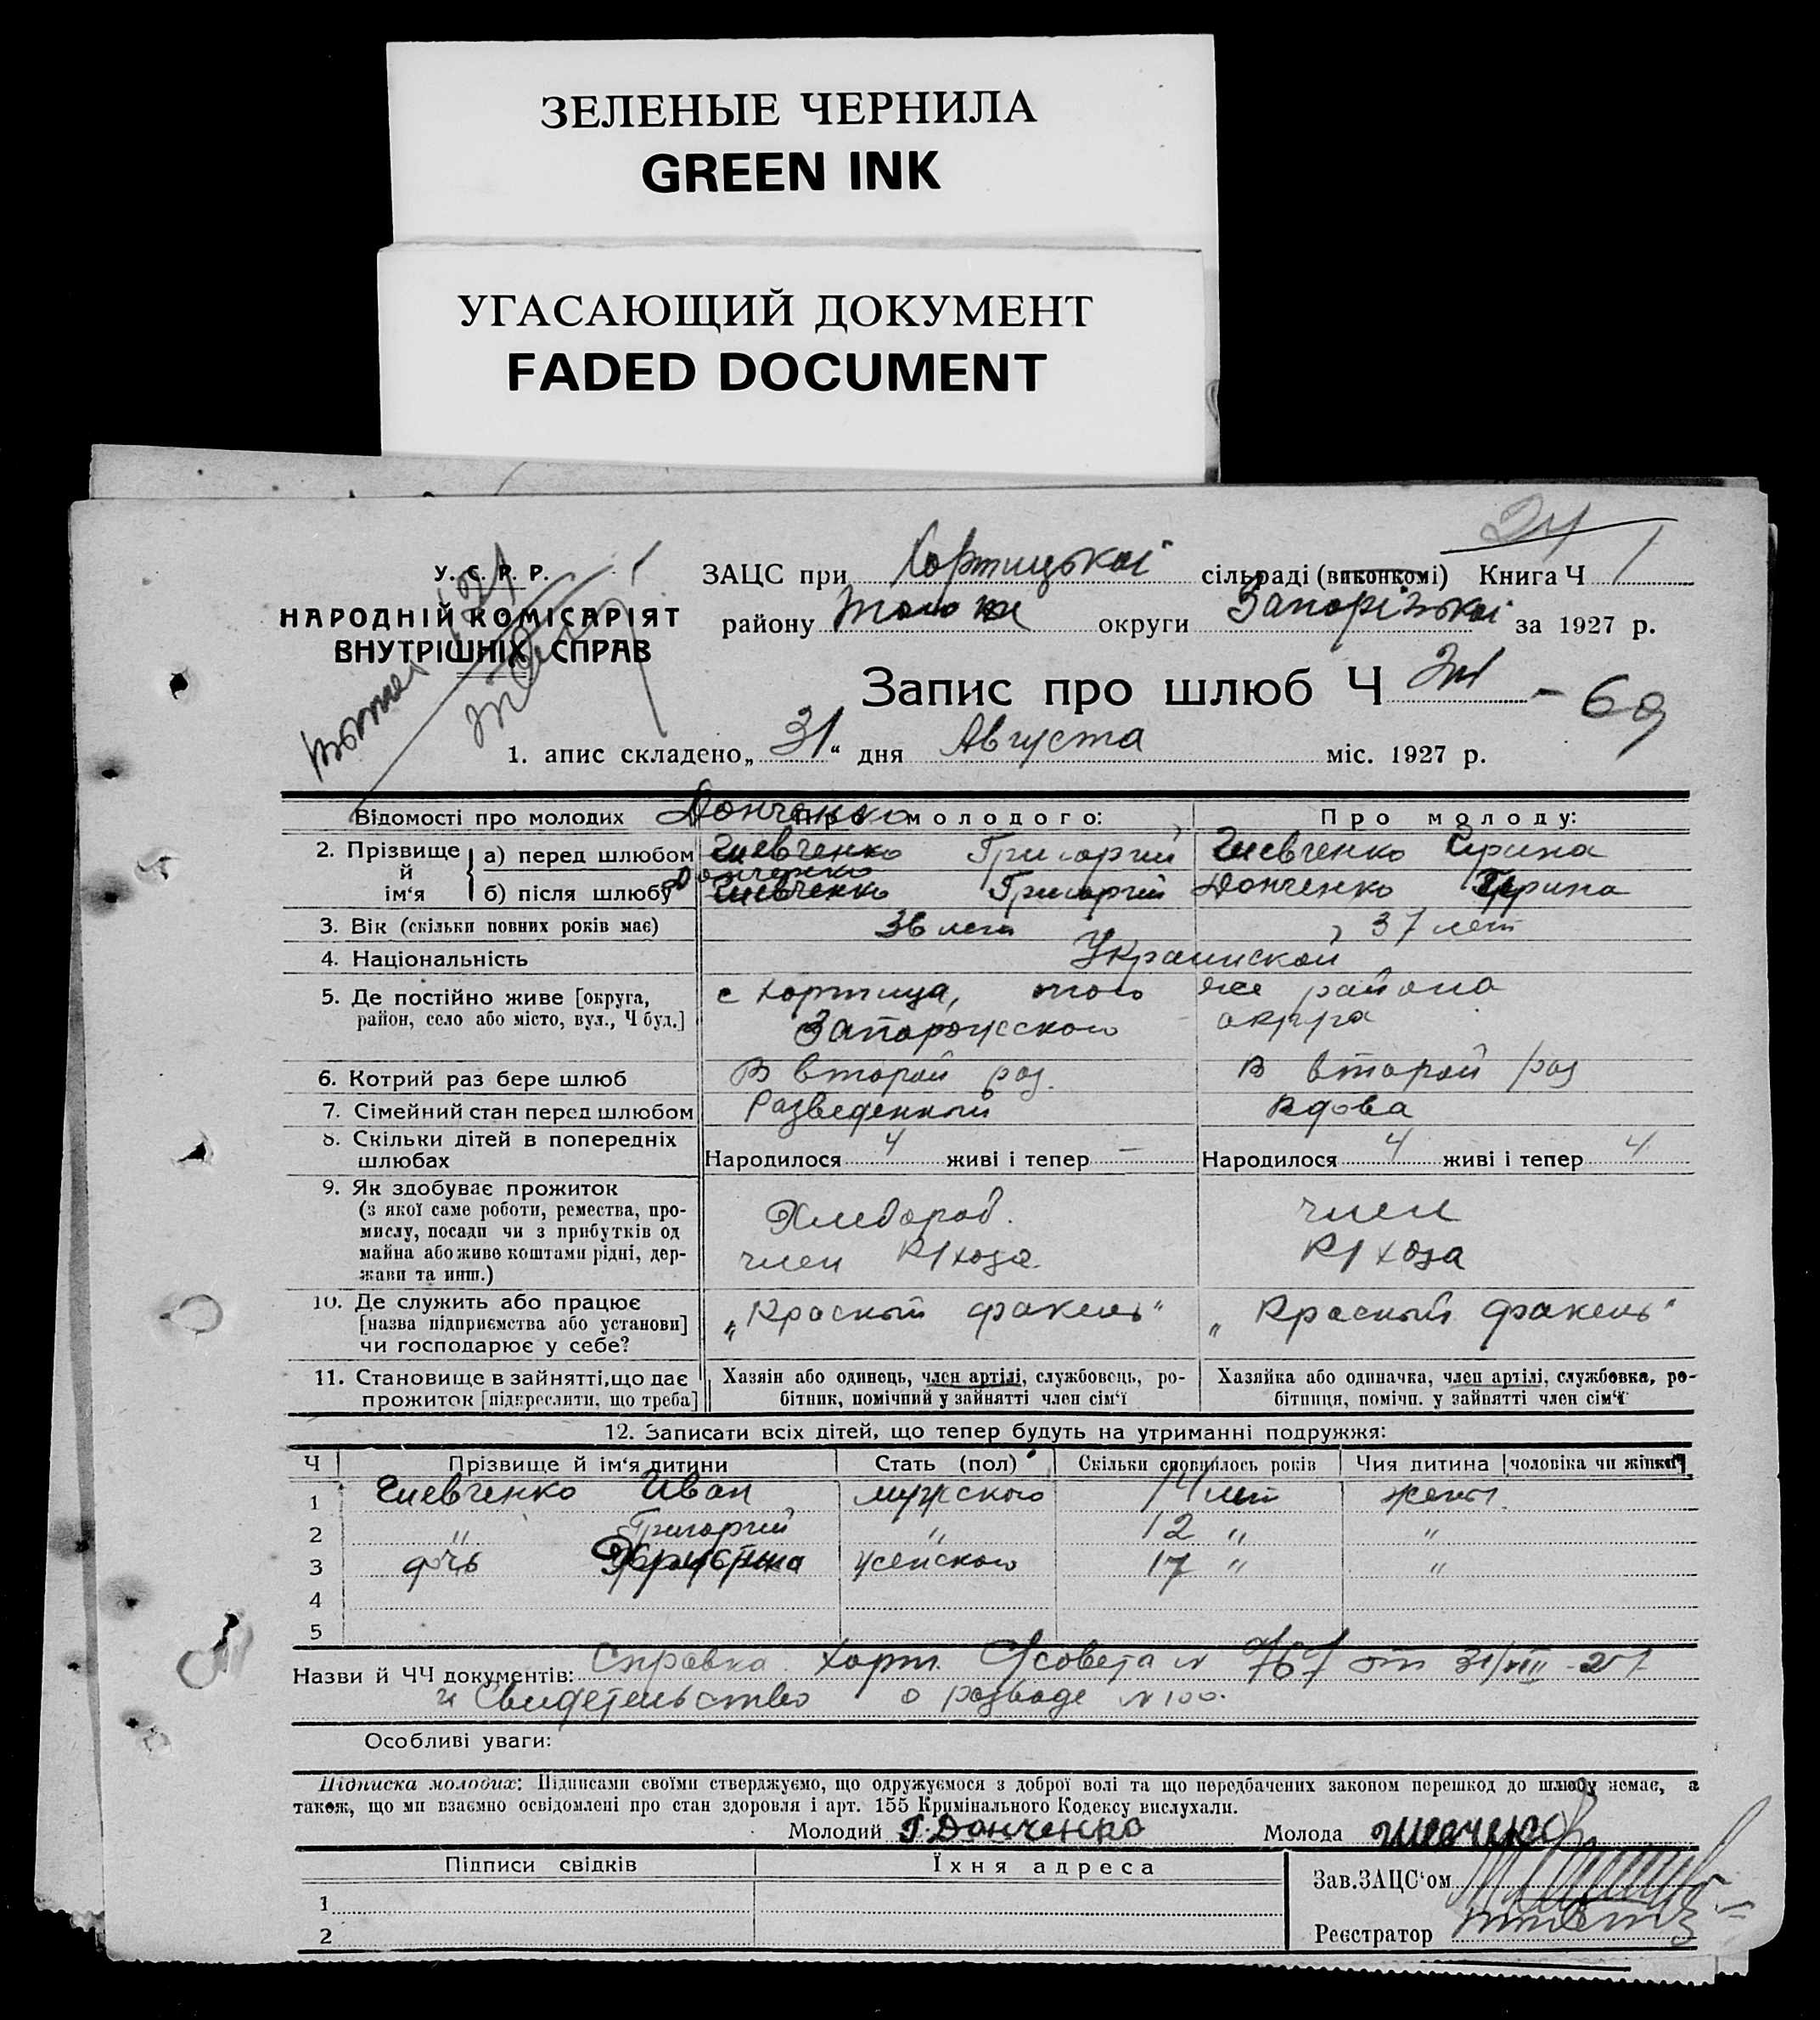 ЗЕЛЕНЫЕ ЧЕРНИЛА
GREEN INK
УГАСАЮЩИЙ ДОКУМЕНТ
FADED DOCUMENT
24
У. С. Р. Р.
НАРОДНІЙ КОМІСАРІЯТ
ВНУТРІШНІХ СПРАВ
ЗАЦС при Хортицької сільраді (виконкомі) Книга Ч 1
району того ж округи Запорізької за 1927 р.
Запис про шлюб Ч - 69
1. апис складено „31“ дня Августа міс. 1927 р.
Відомості про молодих Про молодого: Про молоду:
Донченко
2. Прізвище й ім‘я а) перед шлюбом Шевченко Григорий Шевченко Ирина
Донченко
б) після шлюбу Шевченко Григорий Донченко Ирина
3. Вік (скільки повних років має) 36 лет 37 лет
4. Національність Украинской
5. Де постійно живе [округа, с Хортица, того же района
район, село або місто, вул., Ч буд.] Запорожского округа
6. Котрий раз бере шлюб В второй раз. В второй раз
7. Сімейний стан перед шлюбом Разведенный Вдова
8. Скільки дітей в попередніх
шлюбах Народилося 4 живі і тепер — Народилося 4 живі і тепер 4
9. Як здобуває прожиток
(з якої саме роботи, ремества, про-
мислу, посади чи з прибутків од
майна або живе коштами рідні, дер-
жави та инш.)
Хлебороб. член
член К/хоза. К/хоза
10. Де служить або працює
[назва підприємства або установи]
чи господарює у себе?
„Красный факель“ „Красный факель“
11. Становище в зайнятті, що дає
прожиток [підкреслити, що треба]
Хазяін або одинець, член артілі, службовець, ро-
бітник, помічний у зайнятті член сім‘ї
Хазяйка або одиначка, член артілі, службовка, ро-
бітниця, помічн. у зайнятті член сім‘ї
12. Записати всіх дітей, що тепер будуть на утриманні подружжя:
Ч Прізвище й ім‘я дитини Стать (пол) Скільки сповнилось років Чия дитина [чоловіка чи жінки]
1 Шевченко Иван мужского 14 лет жены.
2 „ Григорий „ 12 „ „
3 дочь женского 17 „ „
4
5
Назви й ЧЧ документів: Справка Хорт. С/совета № 767 от 31/VIII-27
и Свидетельство о разводе № 100.
Особливі уваги:
Підписка молодих: Підписами своїми стверджуємо, що одружуємося з доброї волі та що передбачених законом перешкод до шлюбу немає, а
також, що ми взаємно освідомлені про стан здоровля і арт. 155 Кримінального Кодексу вислухали.
Молодий Г. Донченко Молода
Підписи свідків Їхня адреса
Зав.ЗАЦС‘ом
1
Реєстратор
2